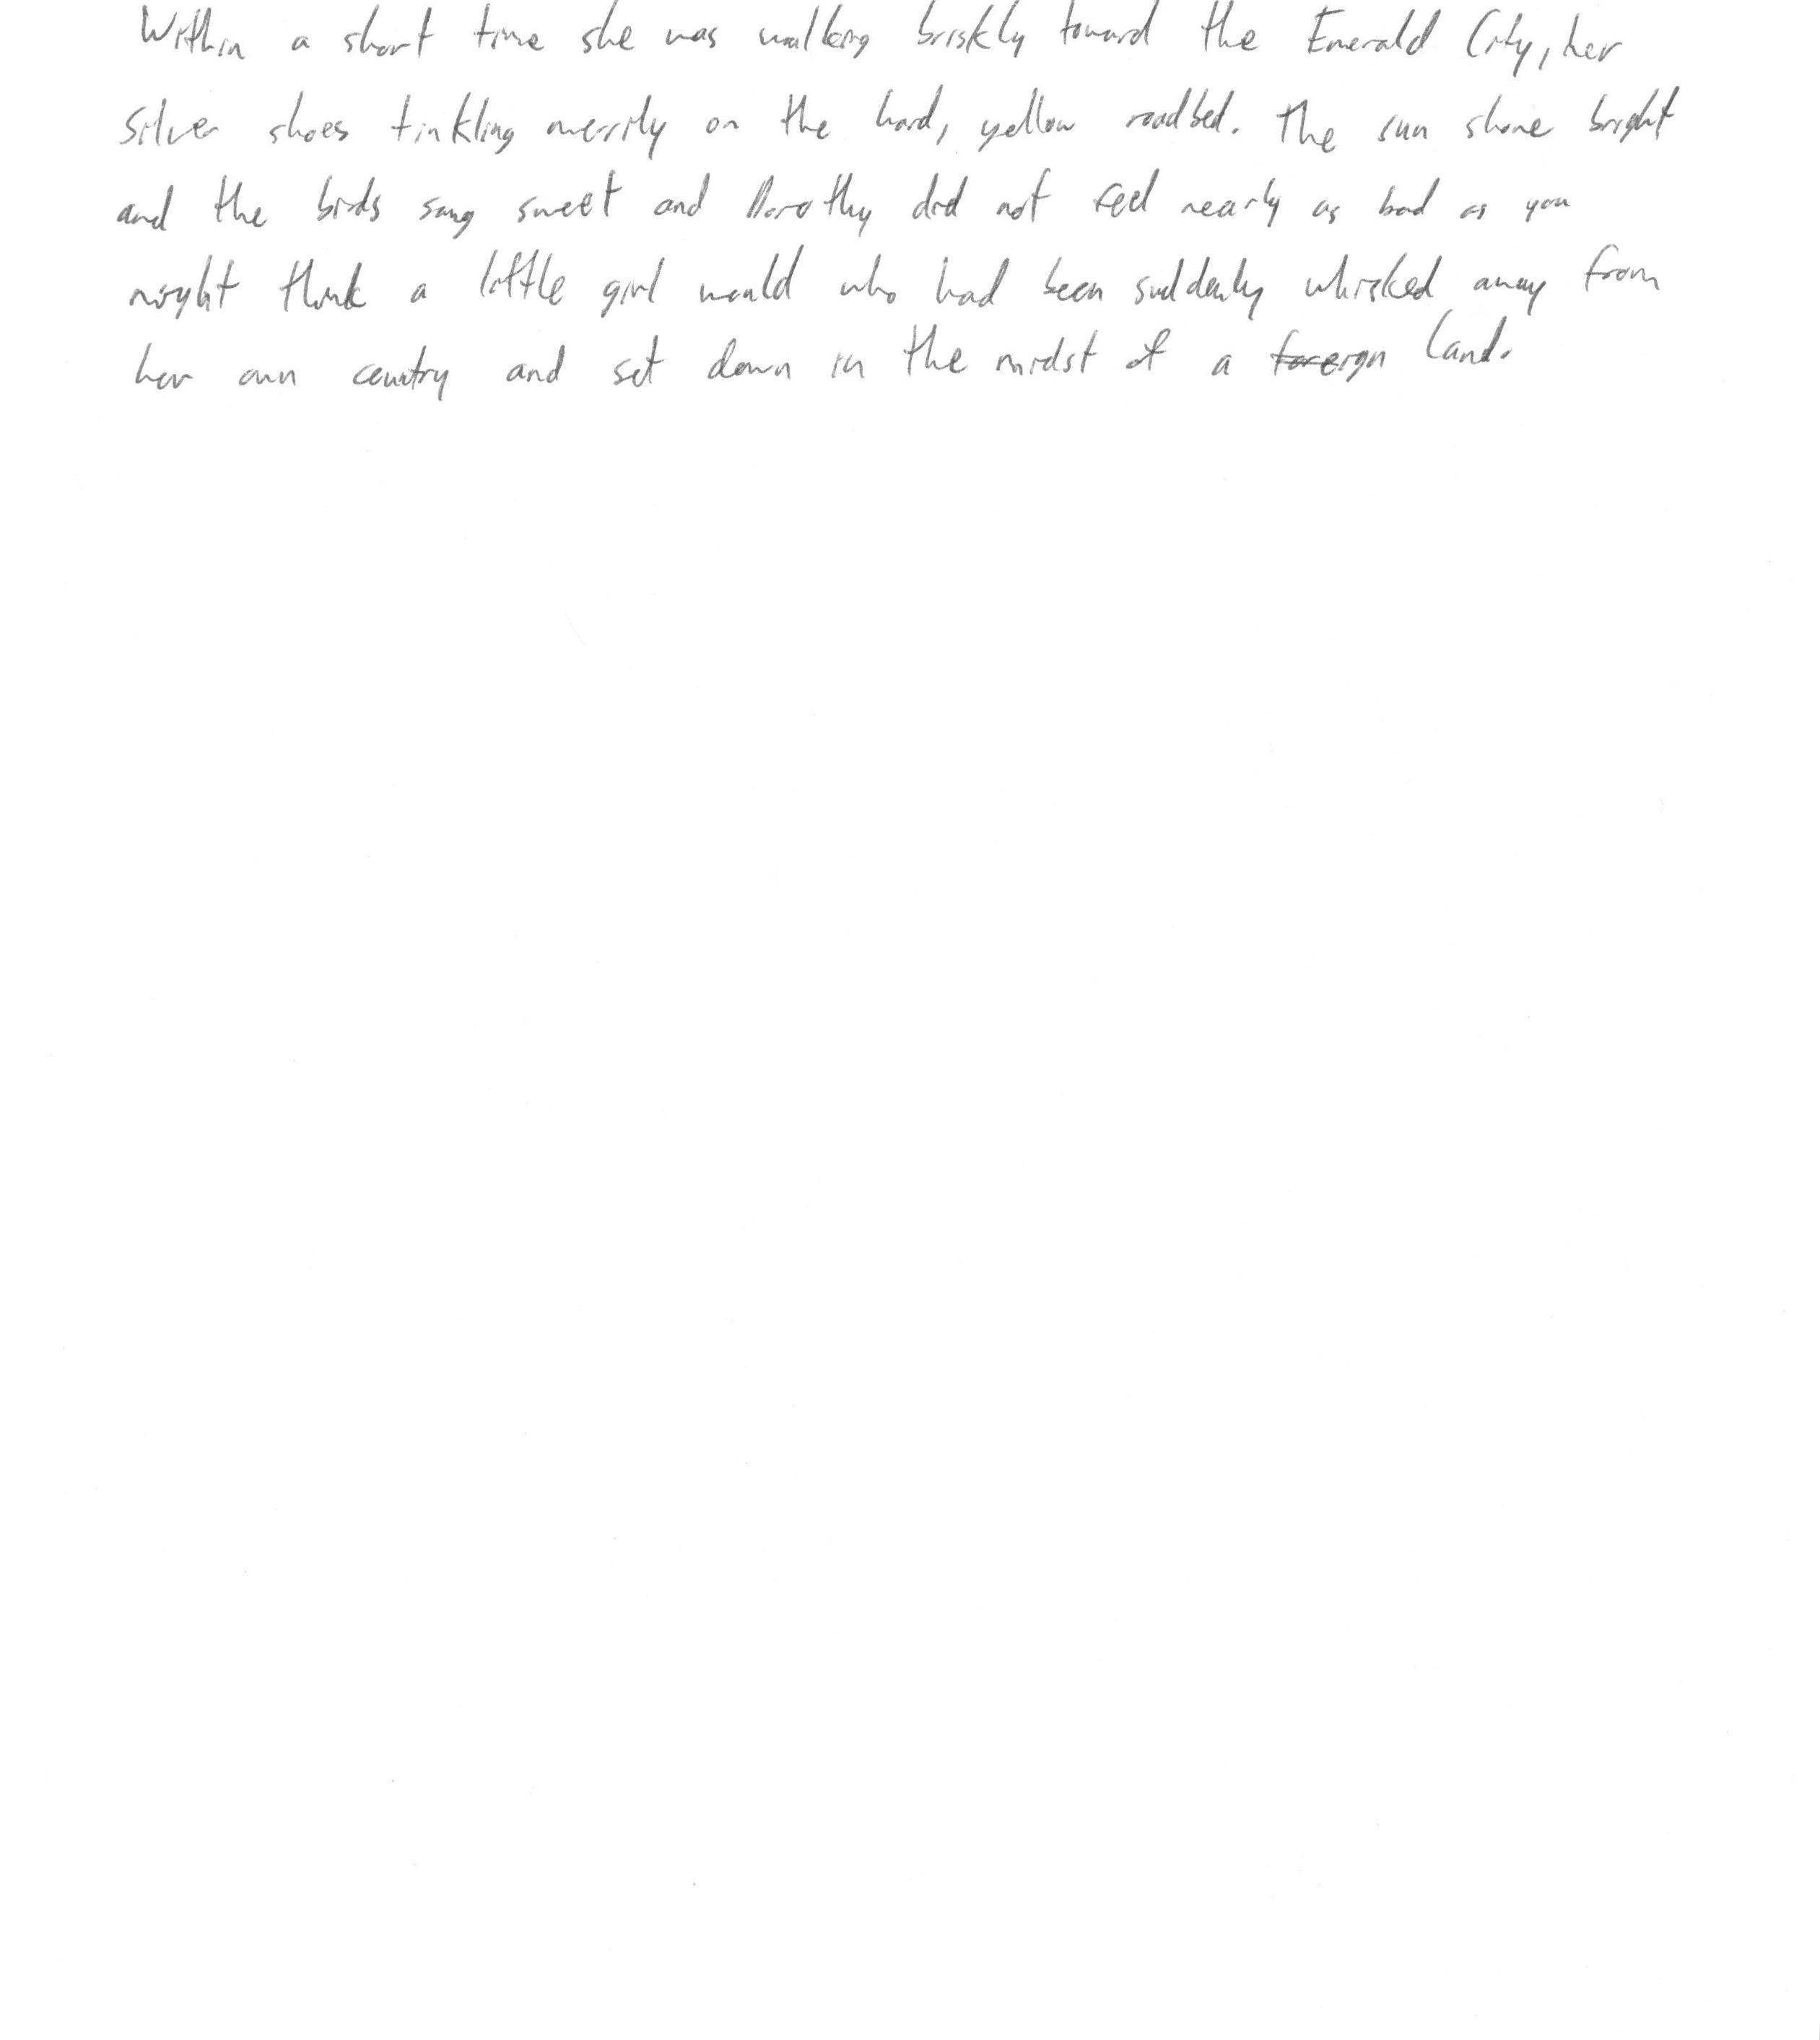 Within a short time she was walking briskly toward the Emerald City, her
Silver shoes tinkling merrily on the hard, yellow roadbed. The sun shone bright
and the birds sang sweet and Dorothy did not feel nearly as bad as you
might think a little girl would who had been suddenly whisked away from
her own country and set down in the midst of a foreign land.